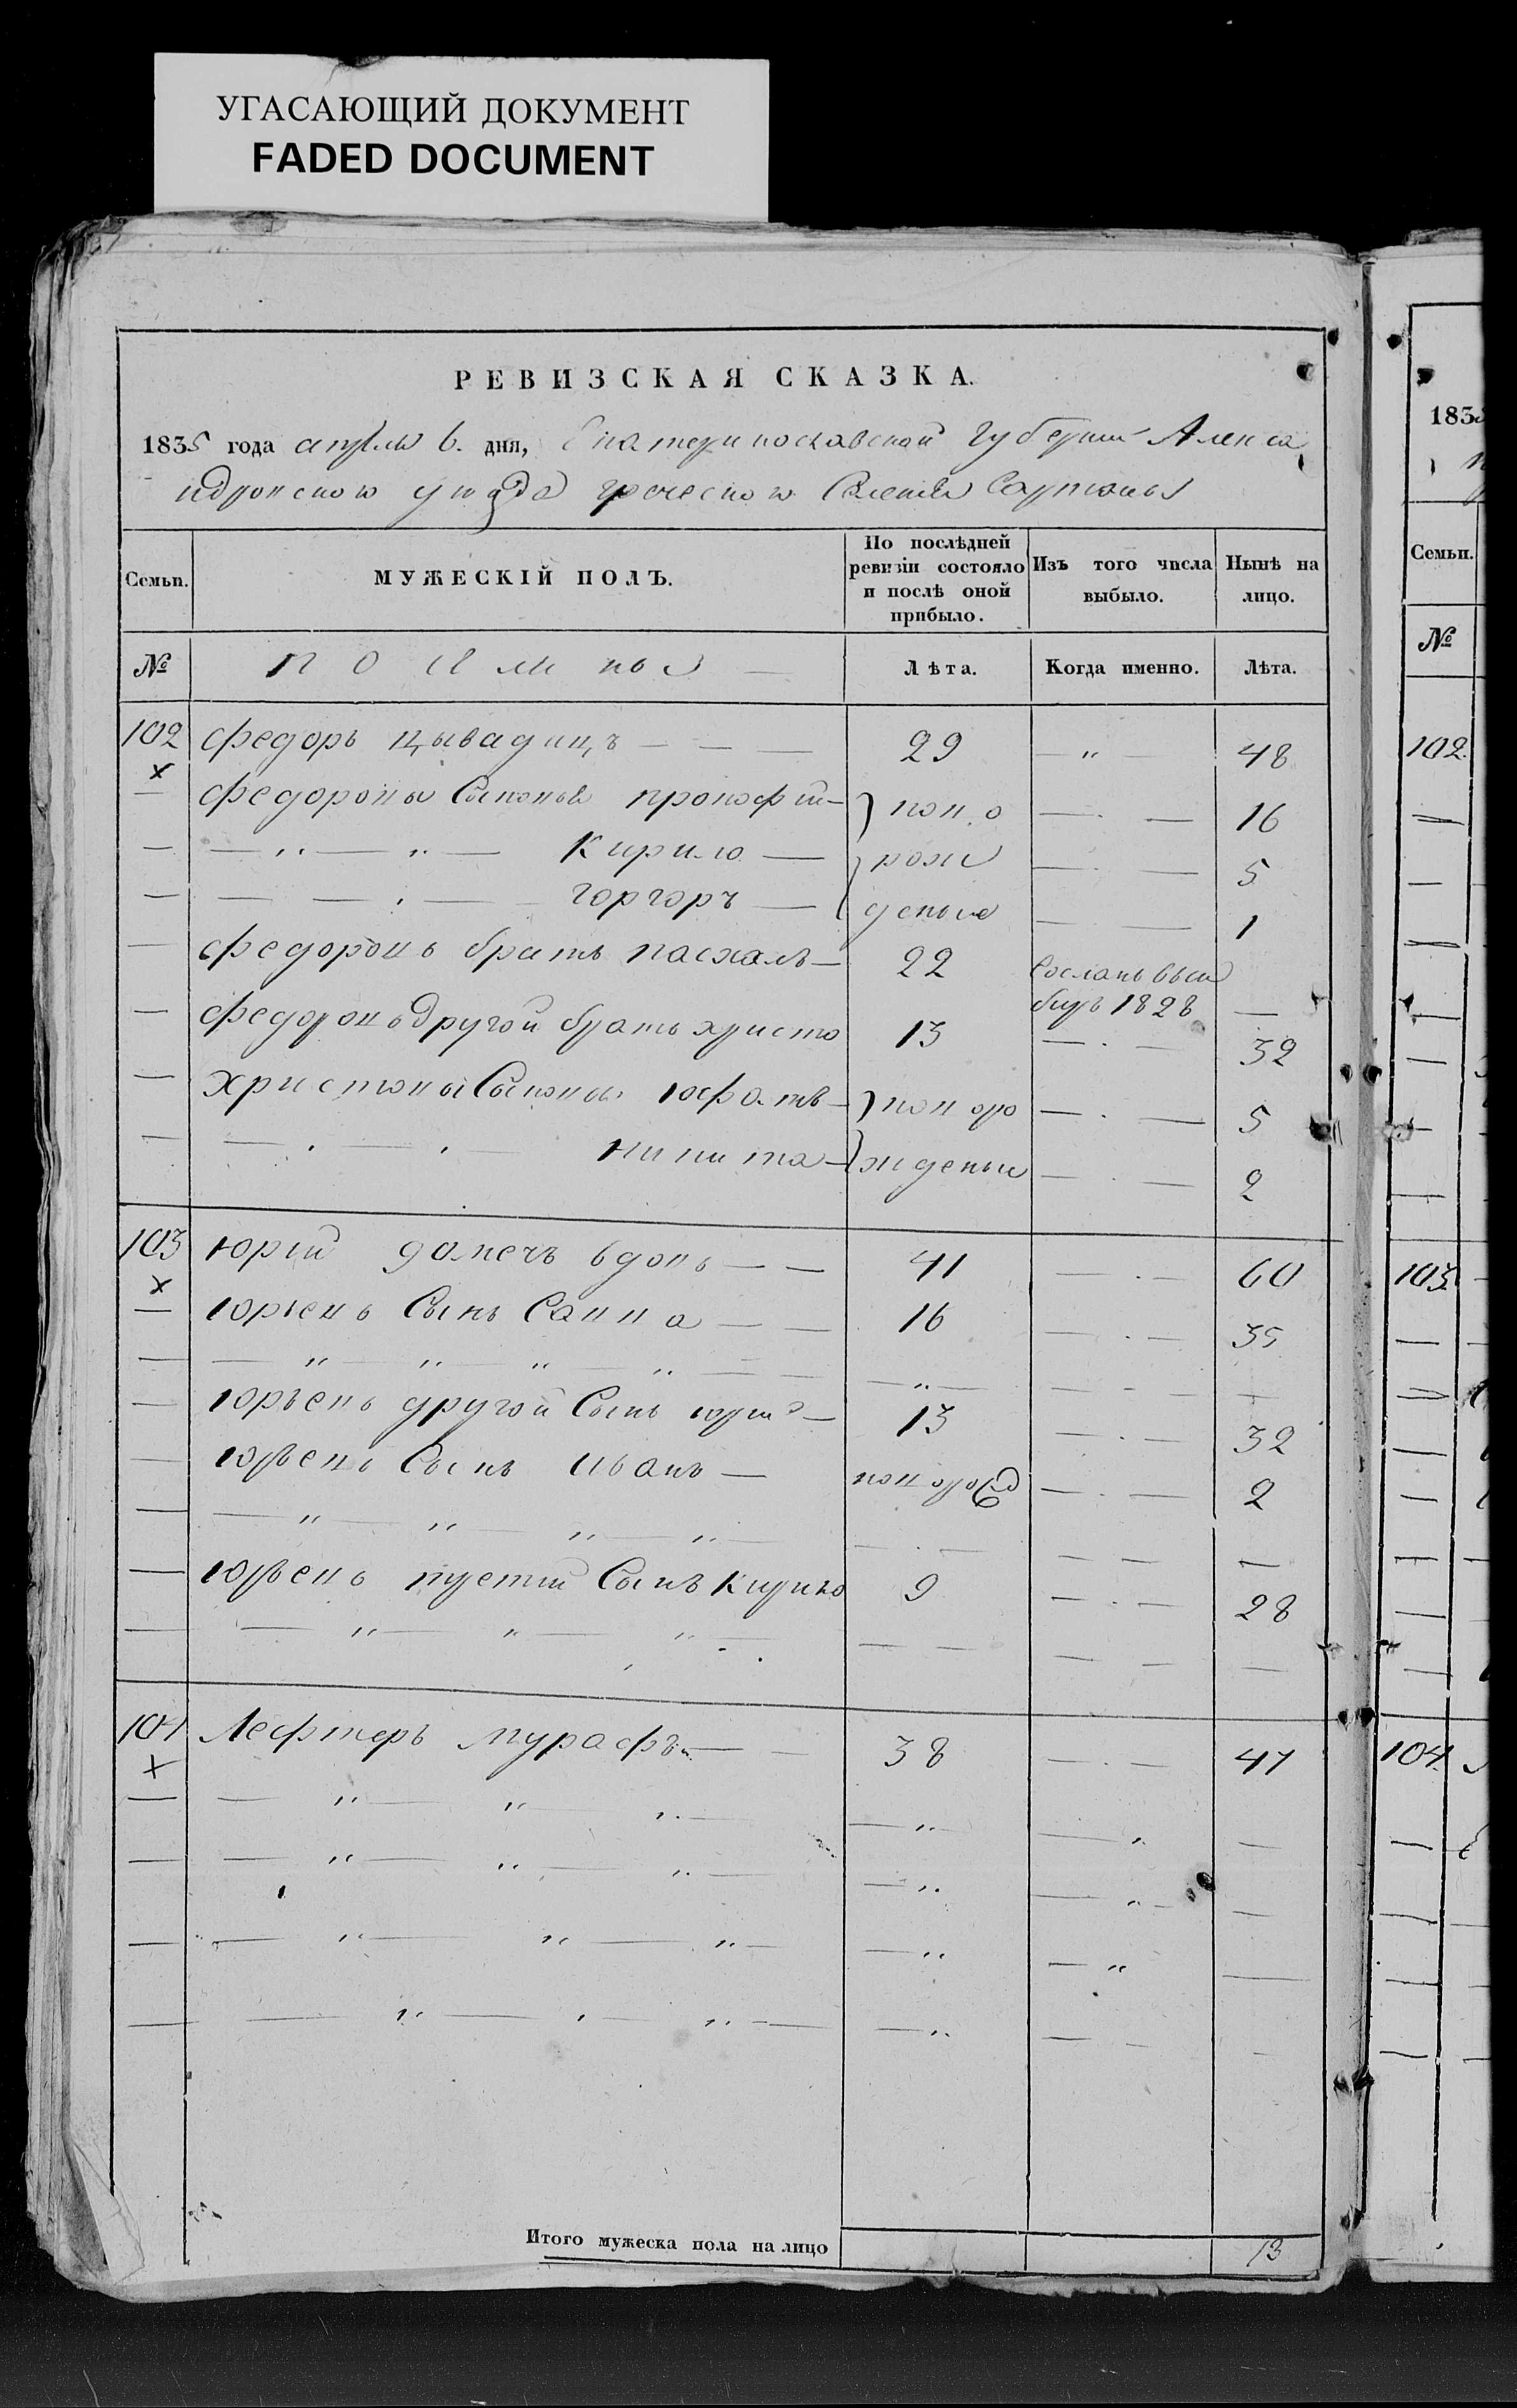 УГАСАЮЩИЙ ДОКУМЕНТ
FADED DOCUMENT
РЕВИЗСКАЯ СКАЗКА.
1835 года апреля 6. дня, Екатеринославской Губернии Алекса
ндровского уезда греческого Селенія Сартаны
Семьи. МУЖЕСКІЙ ПОЛЪ. По послѣдней ревизіи состояло и послѣ оной прибыло. Изъ того числа выбыло. Нынѣ на лицо.
№ Лѣта. Когда именно. Лѣта.
102 Федоръ 29 — " — 48
Федоровы Сыновья Прокофий ново 16
— " — " — Кирило — рож 5
Горгоръ — деные 1
Федоровъ братъ Пасхалъ — 22 Сосланъ въ Си
бирь 1828 —
Федоровъ другой братъ Христо 13 32
Христовы Сыновья — новоро 5
Никита — жденые 2
103 Юрій вдовъ — — 41 60
Юрьевъ Сынъ Савва — — 16 35
Юрьевъ другой Сынъ Юрий — 13 32
Юрьевъ Сынъ Иванъ — новорожд 2
Юрьевъ третий Сынъ Кирило 9 28
104 Лефтеръ — — 38 47
Итого мужеска пола на лицо 13
183
Семьи.
№
102.
103
104.